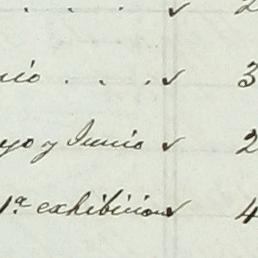 . . . ✓ 2
nio . . . ✓ 3
yo y Junio ✓ 2
1.ª exhibicion ✓ 4